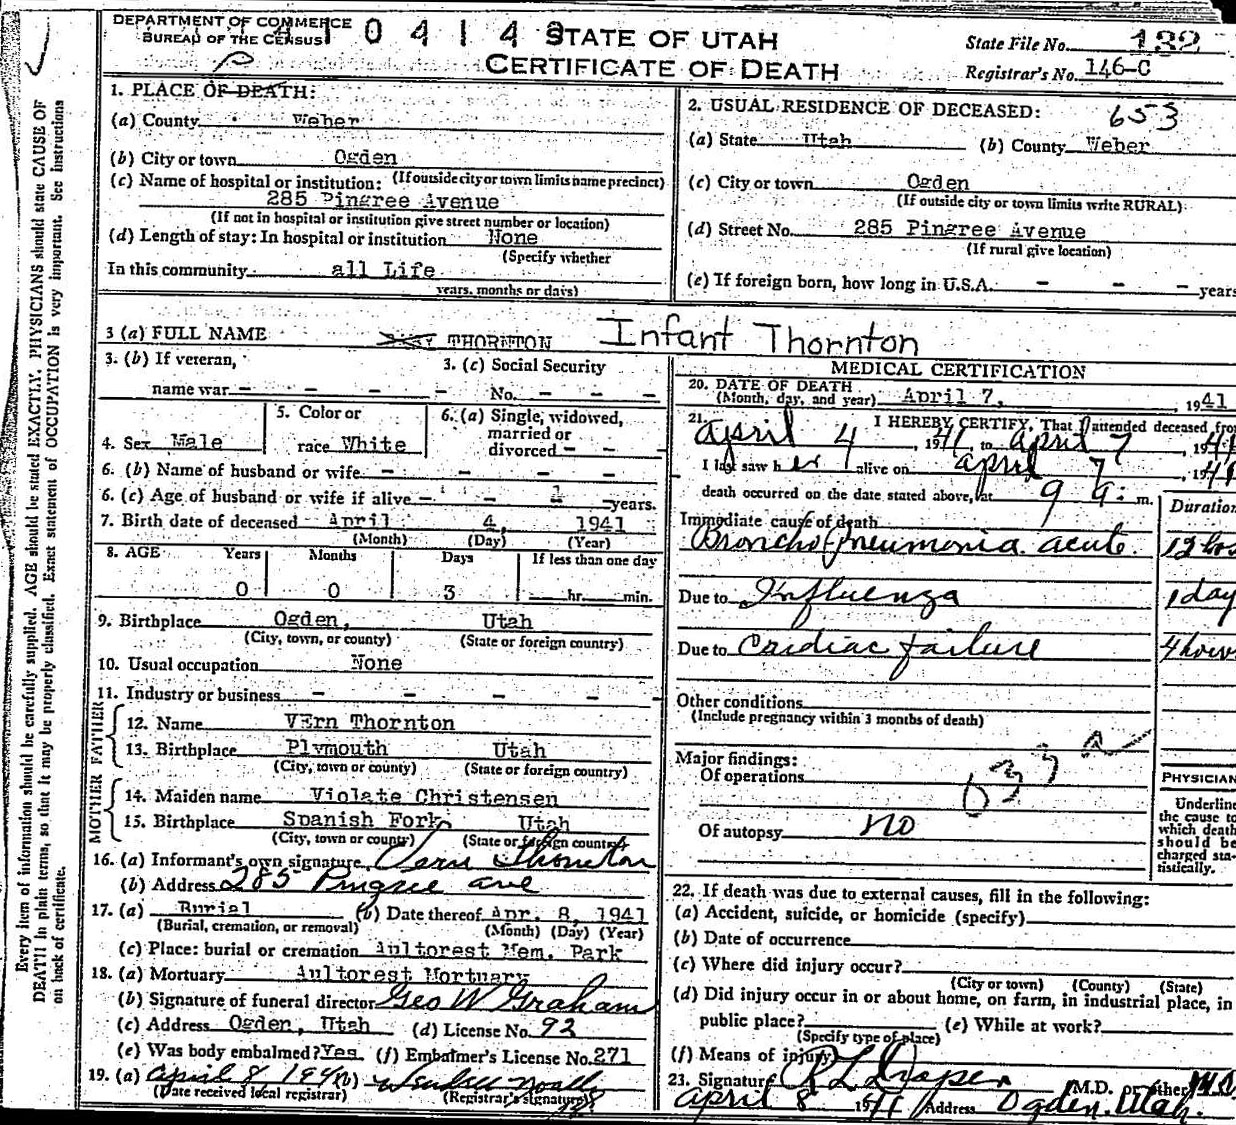 DEPARTMENT OF COMMERCE
BUREAU OF THE CENSUS
4 1 0 4 1 4 8
STATE OF UTAH
CERTIFICATE OF DEATH
State File No. 132
Registrar's No. 146-C
Every item of information should be carefully supplied. AGE should be stated EXACTLY. PHYSICIANS should state CAUSE OF
DEATH in plain terms, so that it may be properly classified. Exact statement of OCCUPATION is very important. See Instructions
on back of certificate.
1. PLACE OF DEATH:
(a) County Weber
(b) City or town Ogden
(If outside city or town limits name precinct)
(c) Name of hospital or institution:
285 Pingree Avenue
(If not in hospital or institution give street number or location)
(d) Length of stay: In hospital or institution None
(Specify whether
In this community all Life
years, months or days)
2. USUAL RESIDENCE OF DECEASED: 653
(a) State Utah (b) County Weber
(c) City or town Ogden
(If outside city or town limits write RURAL)
(d) Street No. 285 Pingree Avenue
(If rural give location)
(e) If foreign born, how long in U.S.A. - - - years
3 (a) FULL NAME THORNTON Infant Thornton
3. (b) If veteran,
name war - - - -
3. (c) Social Security
No. - - -
4. Sex Male
5. Color or
race White
6. (a) Single, widowed,
married or
divorced - -
6. (b) Name of husband or wife - - - -
6. (c) Age of husband or wife if alive - - - years.
7. Birth date of deceased April 4, 1941
(Month) (Day) (Year)
8. AGE Years Months Days If less than one day
0 0 3 hr. min.
9. Birthplace Ogden, Utah
(City, town, or county) (State or foreign country)
10. Usual occupation None
11. Industry or business - - - - -
FATHER
12. Name VErn Thornton
13. Birthplace Plymouth Utah
(City, town or county) (State or foreign country)
MOTHER
14. Maiden name Violate Christensen
15. Birthplace Spanish Fork, Utah
(City, town or county) (State or foreign country)
16. (a) Informant's own signature Vern Thornton
(b) Address 285 Pingree ave
17. (a) Burial (b) Date thereof Apr. 8, 1941
(Burial, cremation, or removal) (Month) (Day) (Year)
(c) Place: burial or cremation Aultorest Mem. Park
18. (a) Mortuary Aultorest Mortuary
(b) Signature of funeral director Geo W Graham
(c) Address Ogden, Utah (d) License No. 92
(e) Was body embalmed? Yes (f) Embalmer's License No. 271
19. (a) April 8 1941 (b)
(Date received local registrar) (Registrar's signature)
MEDICAL CERTIFICATION
20. DATE OF DEATH
(Month, day, and year) April 7, 1941
21. I HEREBY CERTIFY, That I attended deceased from
april 4 1941 to april 7, 1941
I last saw her alive on april 7, 1941
death occurred on the date stated above, at 9 a: m.
Duration
Immediate cause of death
Broncho pneumonia acute. 12 hos
Due to Influenza 1 day
Due to Cardiac failure 4 hours
Other conditions
(Include pregnancy within 3 months of death)
Major findings:
Of operations
Of autopsy no
PHYSICIAN
Underline
the cause to
which death
should be
charged sta-
tistically.
22. If death was due to external causes, fill in the following:
(a) Accident, suicide, or homicide (specify)
(b) Date of occurrence
(c) Where did injury occur?
(City or town) (County) (State)
(d) Did injury occur in or about home, on farm, in industrial place, in
public place? (e) While at work?
(Specify type of place)
(f) Means of injury
23. Signature R L Draper M.D. or other M.D
april 8 1941 Address Ogden, Utah.